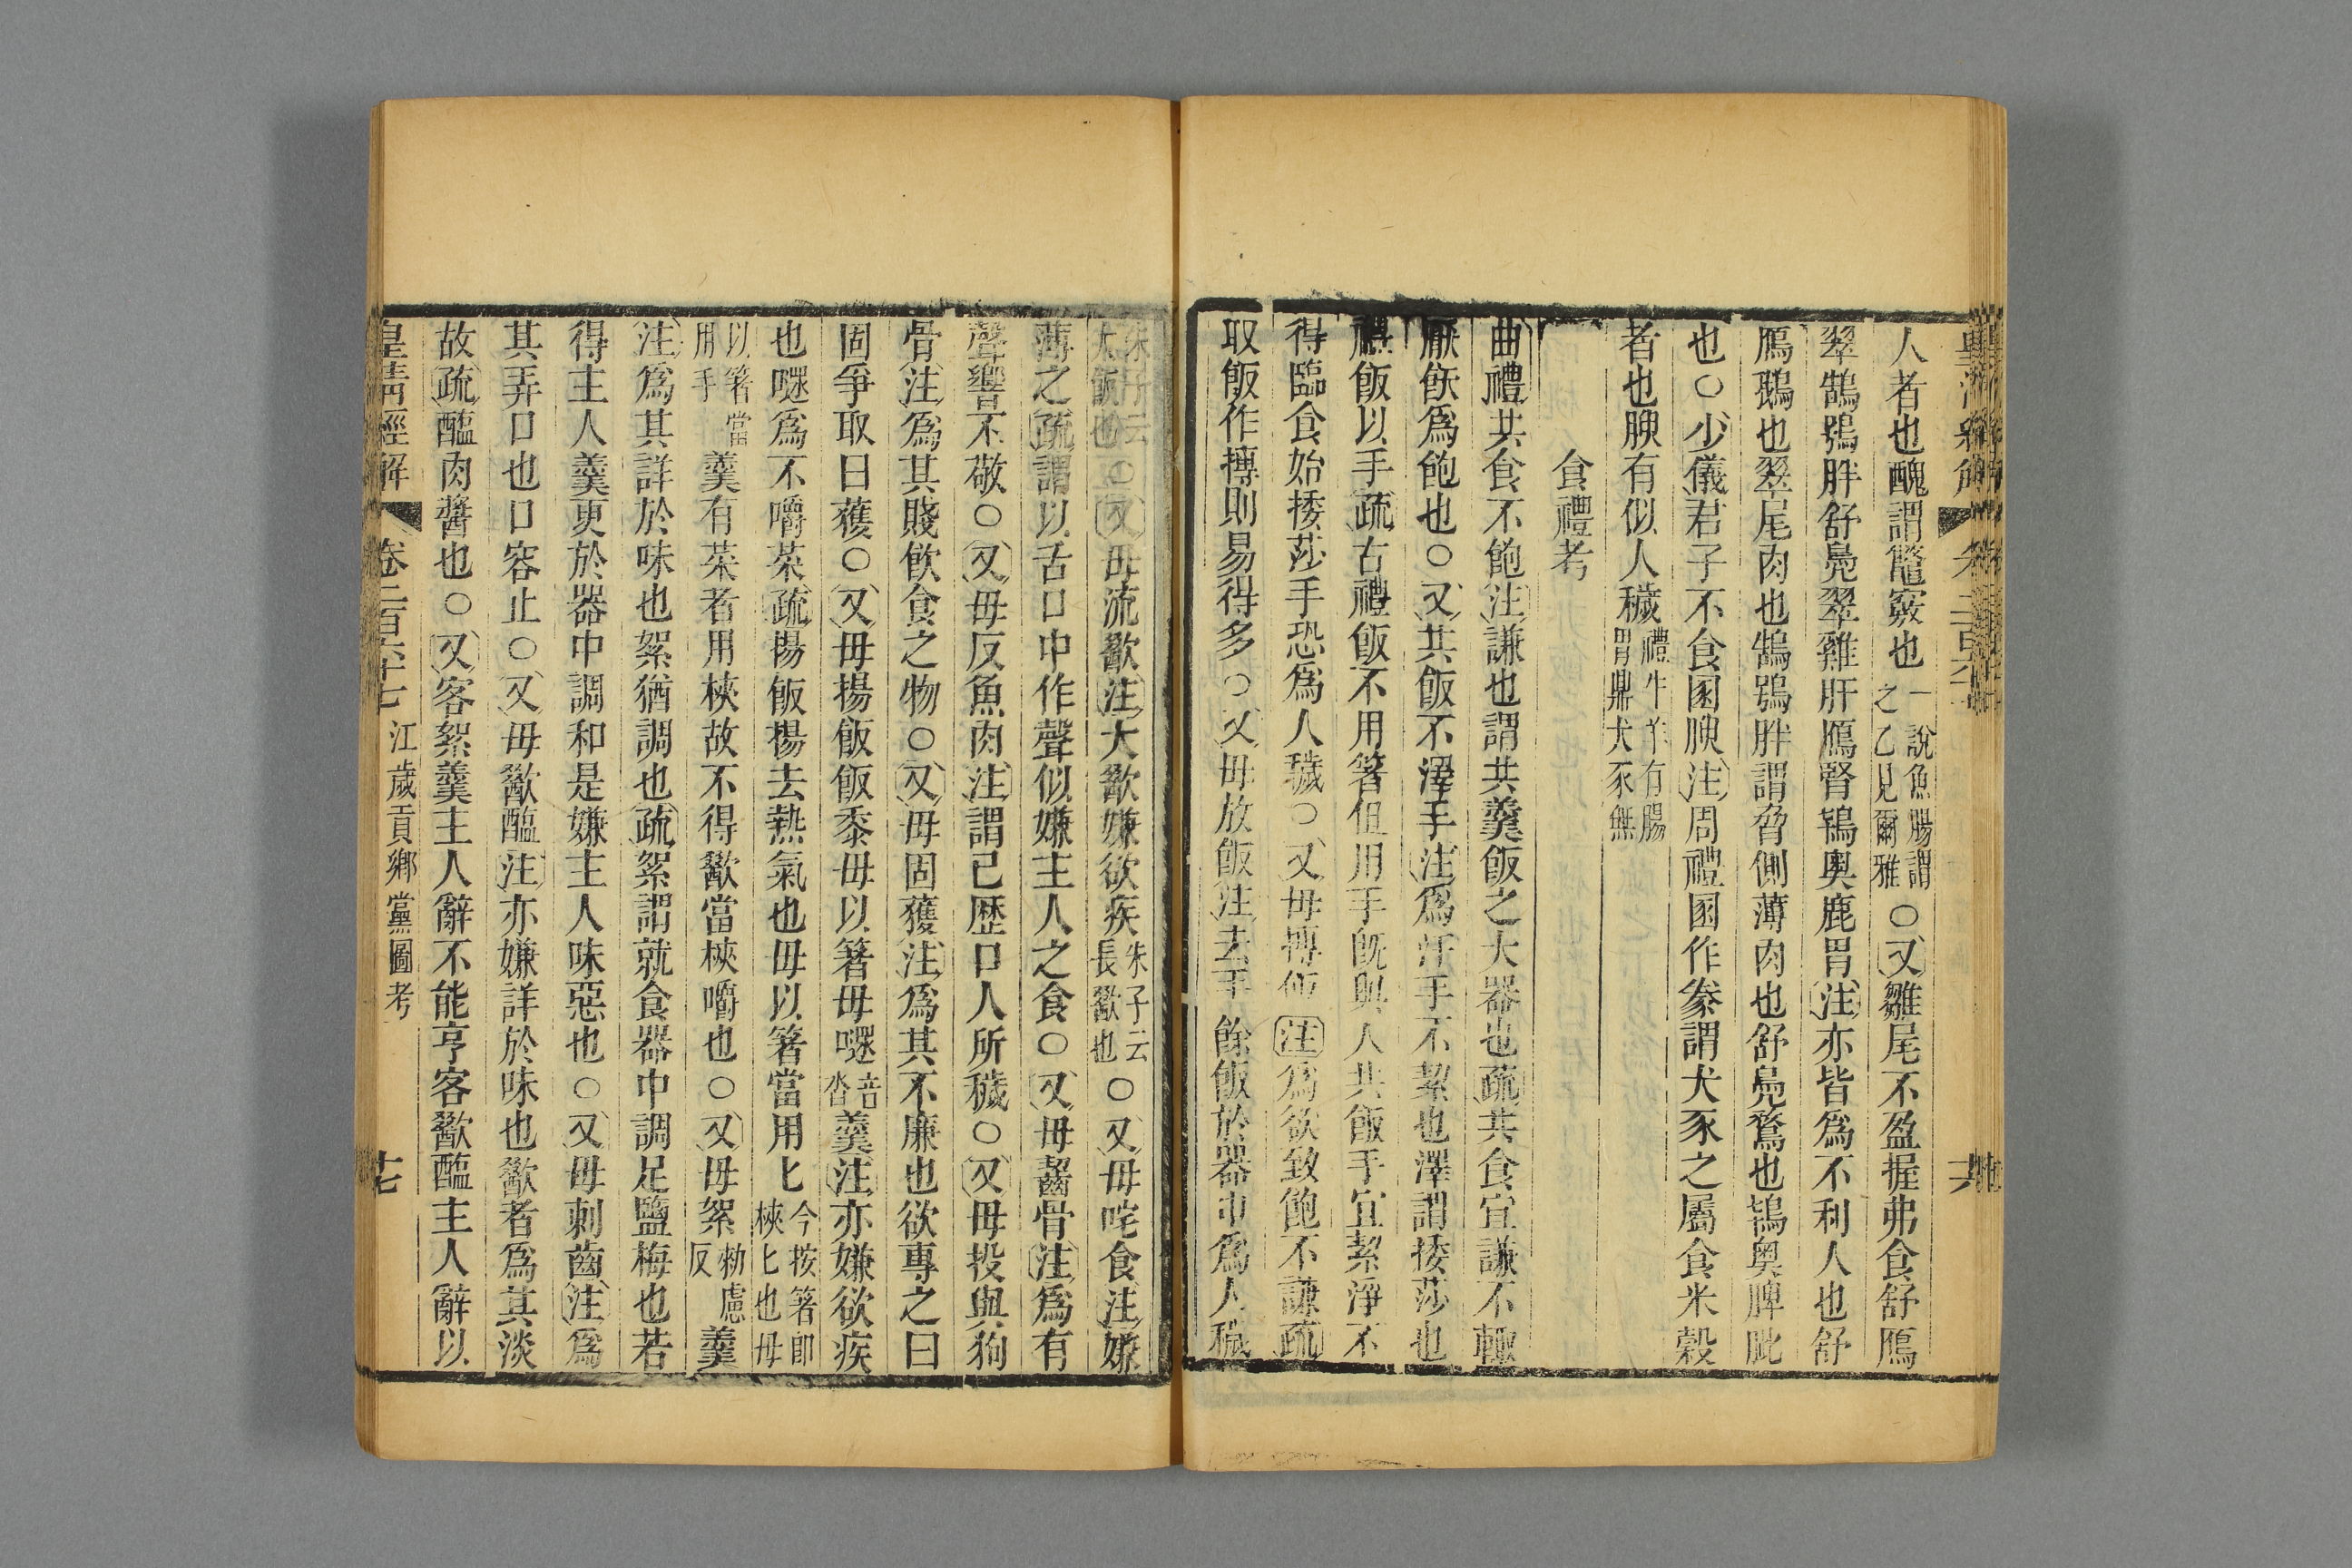 人者也醜謂鼈竅也一說魚腸謂之乙見爾雅○又雛尾不盈握弗食舒鴈
翠鵠鴞胖舒鳧翠雞肝鴈腎鴇奥鹿胃注亦皆爲不利人也舒
鴈鵝也翠尾肉也鵠鴞胖謂脅側薄肉也舒鳧鶩也鴇奥脾胵
也○少儀君子不食圂腴注周禮圂作豢謂犬豕之屬食米穀
者也腴有似人穢禮牛羊有腸胃鼎犬豕無
食禮考
曲禮共食不飽注謙也謂共羹飯之大器也疏共食宜謙不輒
厭飫爲飽也○又共飯不澤手注爲汗手不絜也澤謂捼莎也
禮飯以手疏古禮飯不用箸但用手既與人共飯手宜絜淨不
得臨食始捼莎手恐爲人穢○又毋摶飯注爲欲致飽不謙疏
取飯作摶則易得多○又毋放飯注去手餘飯於器中爲人穢
朱子云大飯也○又毋流歠注大歠嫌欲疾朱子云長歠也○又毋咤食注嫌
薄之疏謂以舌口中作聲似嫌主人之食○又毋齧骨注爲有
聲響不敬○又毋反魚肉注謂己歷口人所穢○又毋投與狗
骨注爲其賤飲食之物○又毋固獲注爲其不廉也欲專之曰
固爭取曰獲○又毋揚飯飯黍毋以箸毋嚃音沓羹注亦嫌欲疾
也嚃爲不嚼菜疏揚飯揚去熱氣也毋以箸當用匕今按箸卽梜匕也毋
以箸當用手羹有菜者用梜故不得歠當梜嚼也○又毋絮勑慮反羹
注爲其詳於味也絮猶調也疏絮謂就食器中調足鹽梅也若
得主人羹更於器中調和是嫌主人味惡也○又毋刺齒注爲
其弄口也口容止○又毋歠醢注亦嫌詳於味也歠者爲其淡
故疏醢肉醬也○又客絮羹主人辭不能亨客歠醢主人辭以
皇淸經解 卷二百六十七 江歲貢鄉黨圖考 十七